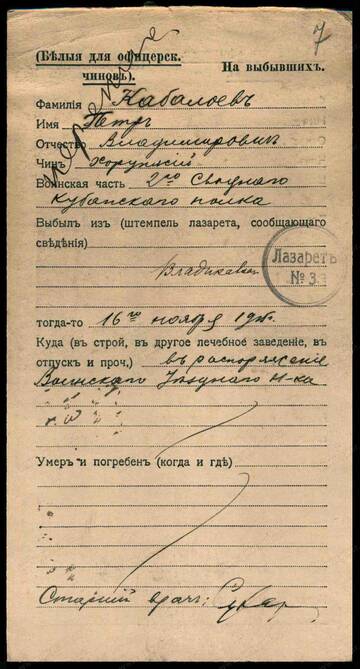 7
(Бѣлыя для офицерск. чиновъ).
На выбывшихъ.
Фамилія Кабалоевъ
Имя Петръ
Отчество Владимировичъ
Чинъ Хорунжій
Воинская часть 2го Сводного
Кубанского полка
Выбылъ изъ (штемпель лазарета, сообщающаго
свѣдѣнія)
Лазаретъ
№ 3
Владикавказ
тогда-то 16го ноября
Куда (въ строй, въ другое лечебное заведеніе, въ
отпускъ и проч.) въ распоряженіе
Воинского Уѣздного Н-ка
Умеръ и погребенъ (когда и гдѣ)
Старшій врачъ: